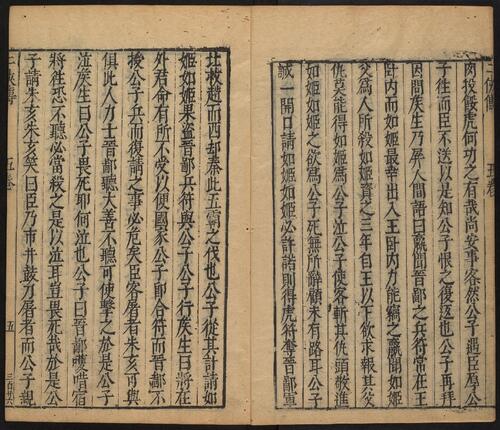 肉投餒虎何功之有哉尚安事客然公子遇臣厚公
子往而臣不送以是知公子恨之復返也公子再拜
因問矦生乃屏人間語曰嬴聞晉鄙之兵符常在王
卧内而如姬最幸出入王卧内力能竊之嬴聞如姬
父爲人所殺如姬資之三年自王以下欲求報其父
仇莫能得如姬爲公子泣公子使客斬其仇頭敬進
如姬如姬之欲爲公子死無所辭顧未有路耳公子
誠一開口請如姬如姬必許諾則得虎符奪晉鄙軍
北救趙而西却秦此五霸之伐也公子從其計請如
姬如姬果盜晉鄙兵符與公子公子行矦生曰將在
外君命有所不受以便國家公子即合符而晉鄙不
授公子兵而復請之事必危矣臣客屠者朱亥可與
俱此人力士晉鄙聽大善不聽可使擊之於是公子
泣矦生曰公子畏死耶何泣也公子曰晉鄙嚄唶宿
將往恐不聽必當殺之是以泣耳豈畏死哉於是公
子請朱亥朱亥笑曰臣乃市井鼓刀屠者而公子親
五卷
五